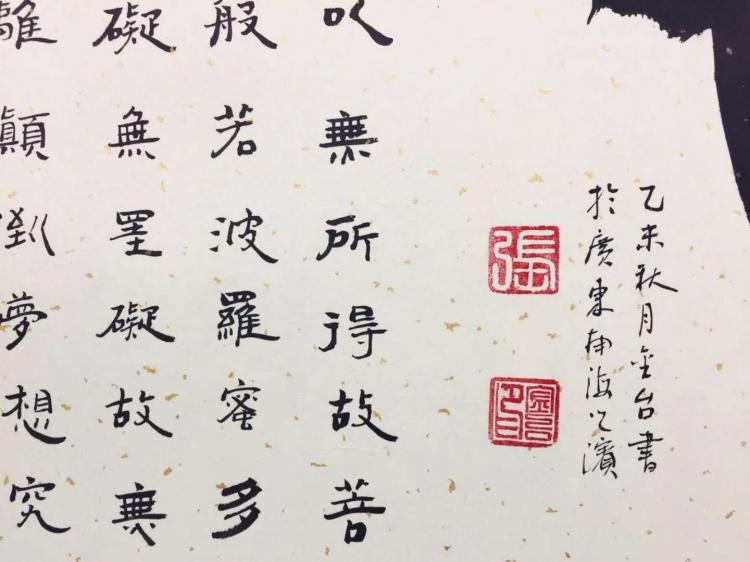 乙未秋月金台書
於廣東南海之濱
張
以無所得故菩
般若波羅蜜多
礙無罣礙故無
離顛倒夢想究